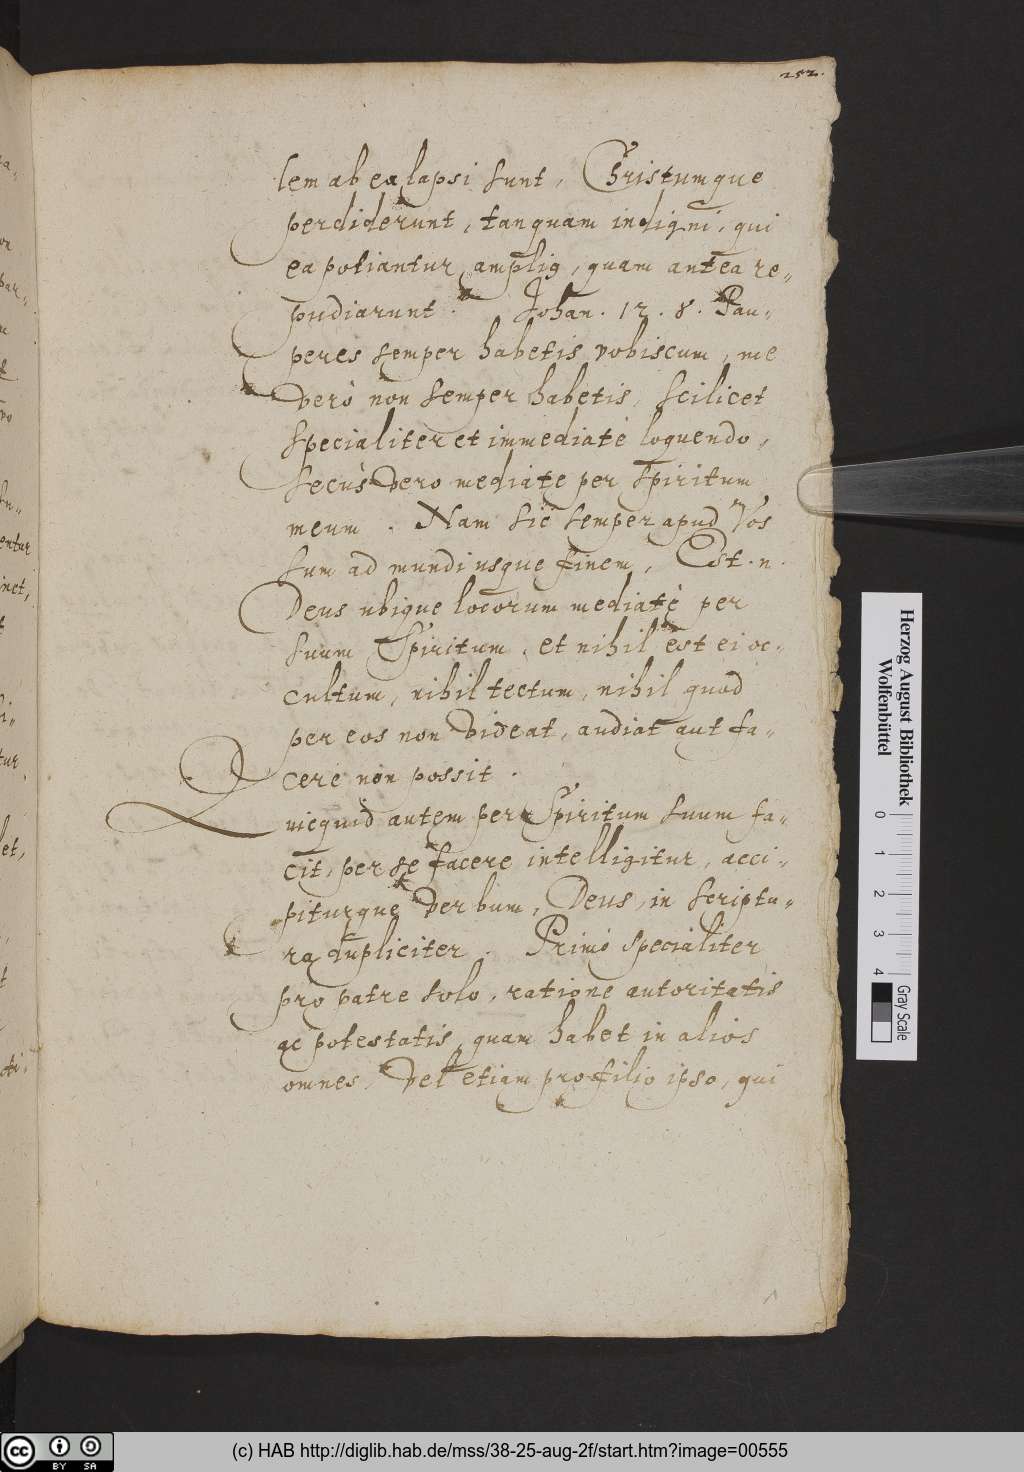 252.
lem ab ea lapsi sunt, Christumque
perdiderunt, tanquam indigni, qui
ea potiantur amplig, quam antea re-,
pudiarunt. Johan. 12. 8. Pau-,
peres semper habetis vobiscum, me
verò non semper habetis, scilicet
specialiter et immediatè loquendo,
secùs vero mediate per spiritum
meum. Nam sic semper apud Vos
sum ad mundi usque finem, Est. n.
Deus ubique locorum mediatè per
suum Spiritum, et nihil est ei oc-,
cultum, nihil tectum, nihil quod
per eos non videat, audiat aut fa-,
cere non possit.
Quicquid autem per Spiritum suum fa-,
cit, per se facere intelligitur, acci-,
piturque verbum, Deus, in Scriptu-,
ra dupliciter. Primò specialiter
pro patre solo, ratione autoritatis
ac potestatis, quam habet in alios
omnes, vel etiam pro filio ipso, qui
Herzog August Bibliothek
Wolfenbüttel
0 1 2 3 4
Gray Scale
cc BY SA
(c) HAB http://diglib.hab.de/mss/38-25-aug-2f/start.htm?image=00555